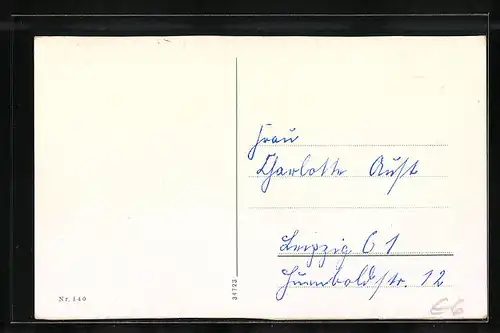 Frau
Charlotte Aust
Leipzig C 1
Humboldstr. 12
Nr. 140
34723
E6